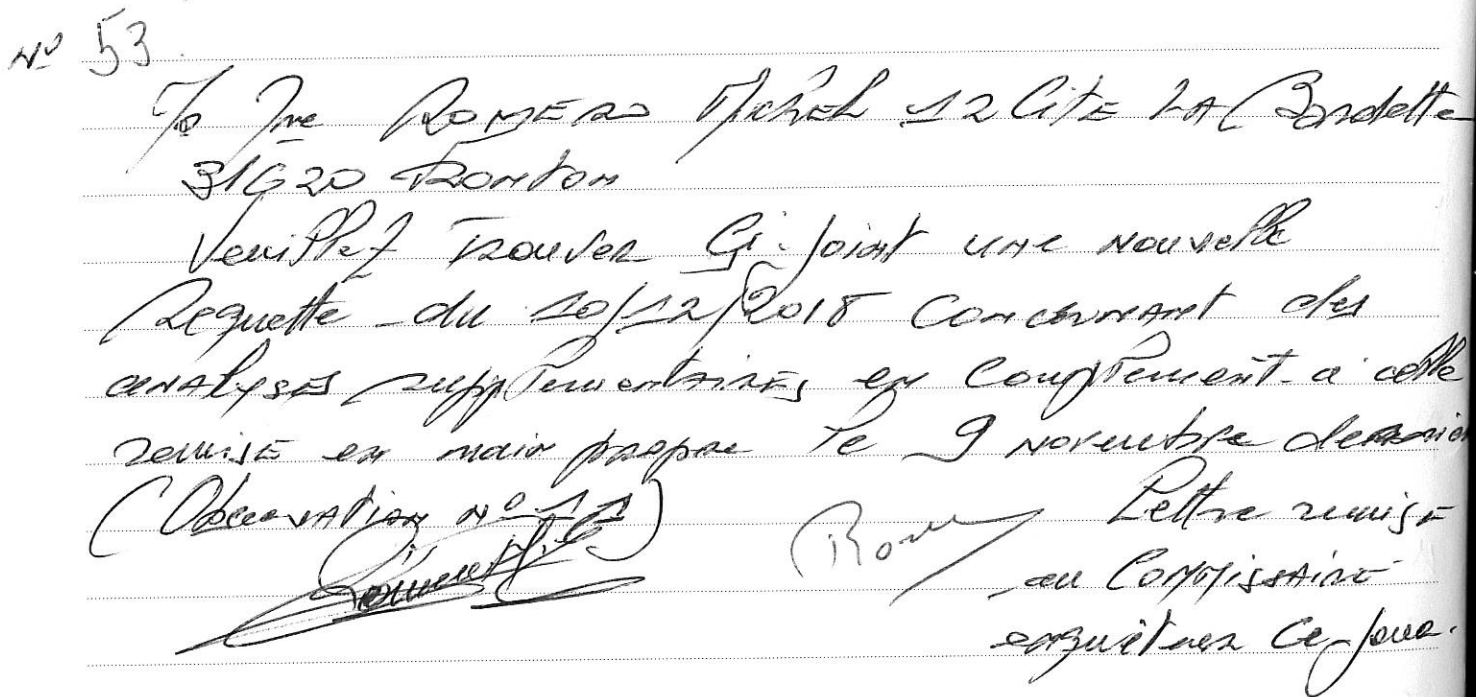 N° 53.
Mr Mme ROMERO Michel 12 Cité LA Bordette
31620 FRONTON
Veuillez TROUVER Ci-Joint une Nouvelle
Requette du 10/12/2018 Concernant des
ANALYSES supplementaires en Complement a celle
remise en main propre le 9 Novembre dernier
(Observation N° 11)
Lettre remise
au Commissaire
enquêteur Ce jour.